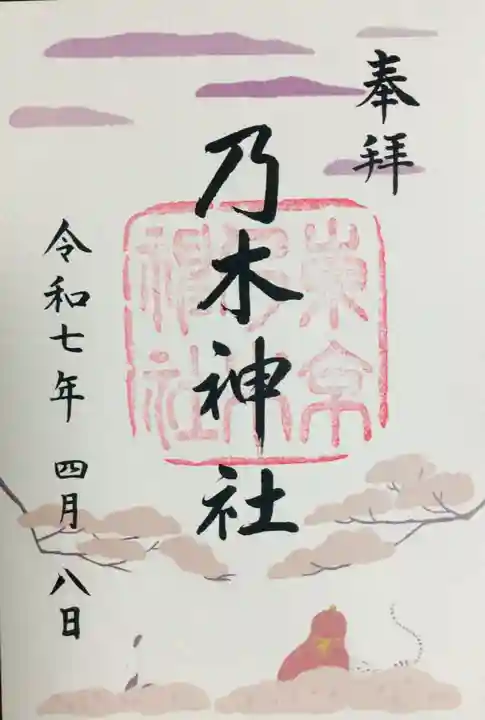 奉拝
乃木神社
東京乃木神社
令和七年 四月八日